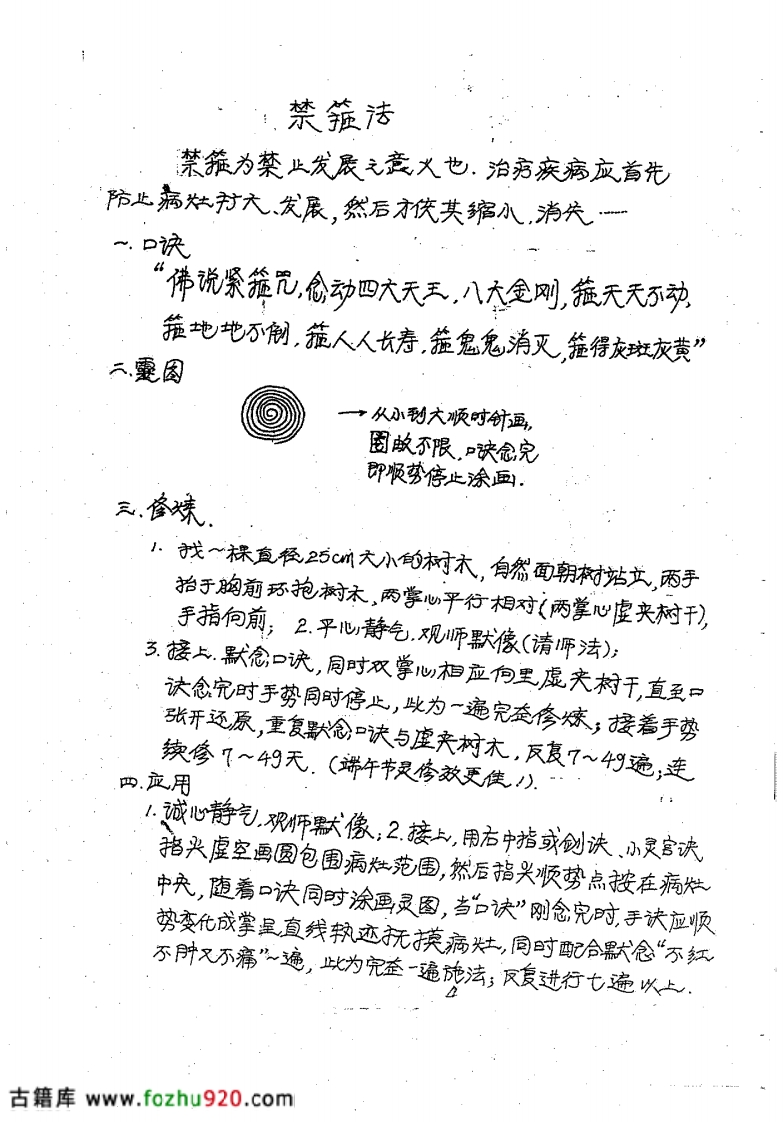 禁箍法
禁箍为禁止发展之意义也.治疗疾病应首先
防止病灶扩大、发展,然后才使其缩小.消失……
一.口诀
“佛说紧箍咒,念动四大天王,八大金刚,箍天天不动,
箍地地不倒,箍人人长寿.箍鬼鬼消灭,箍得灰斑灰黄”
二.靈图
→从小到大顺时针画,
圈数不限.口诀念完
即顺势停止涂画.
三.修煉.
1. 找一棵直径25cm大小的树木,自然面朝树站立,两手
抬于胸前环抱树木,两掌心平行相对(两掌心虚夹树干),
手指向前; 2.平心静气.观师默像(请师法);
3.接上.默念口诀,同时双掌心相应向里虚夹树干,直至口
诀念完时手势同时停止,此为一遍完整修煉;接着手势
张开还原,重复默念口诀与虚夹树木,反复7~49遍;连
续修7~49天.(端午节灵修效更佳!).
四.应用
1.诚心静气.观师默像;2.接上,用右中指或剑诀、小灵官诀
指尖虚空画圆包围病灶范围,然后指尖顺势点按在病灶
中央,随着口诀同时涂画灵图,当“口诀”刚念完时,手诀应顺
势变化成掌呈直线轨迹抚摸病灶,同时配合默念“不红
不肿又不痛”一遍,此为完整一遍施法;反复进行七遍以上.
古籍库 www.fozhu920.com